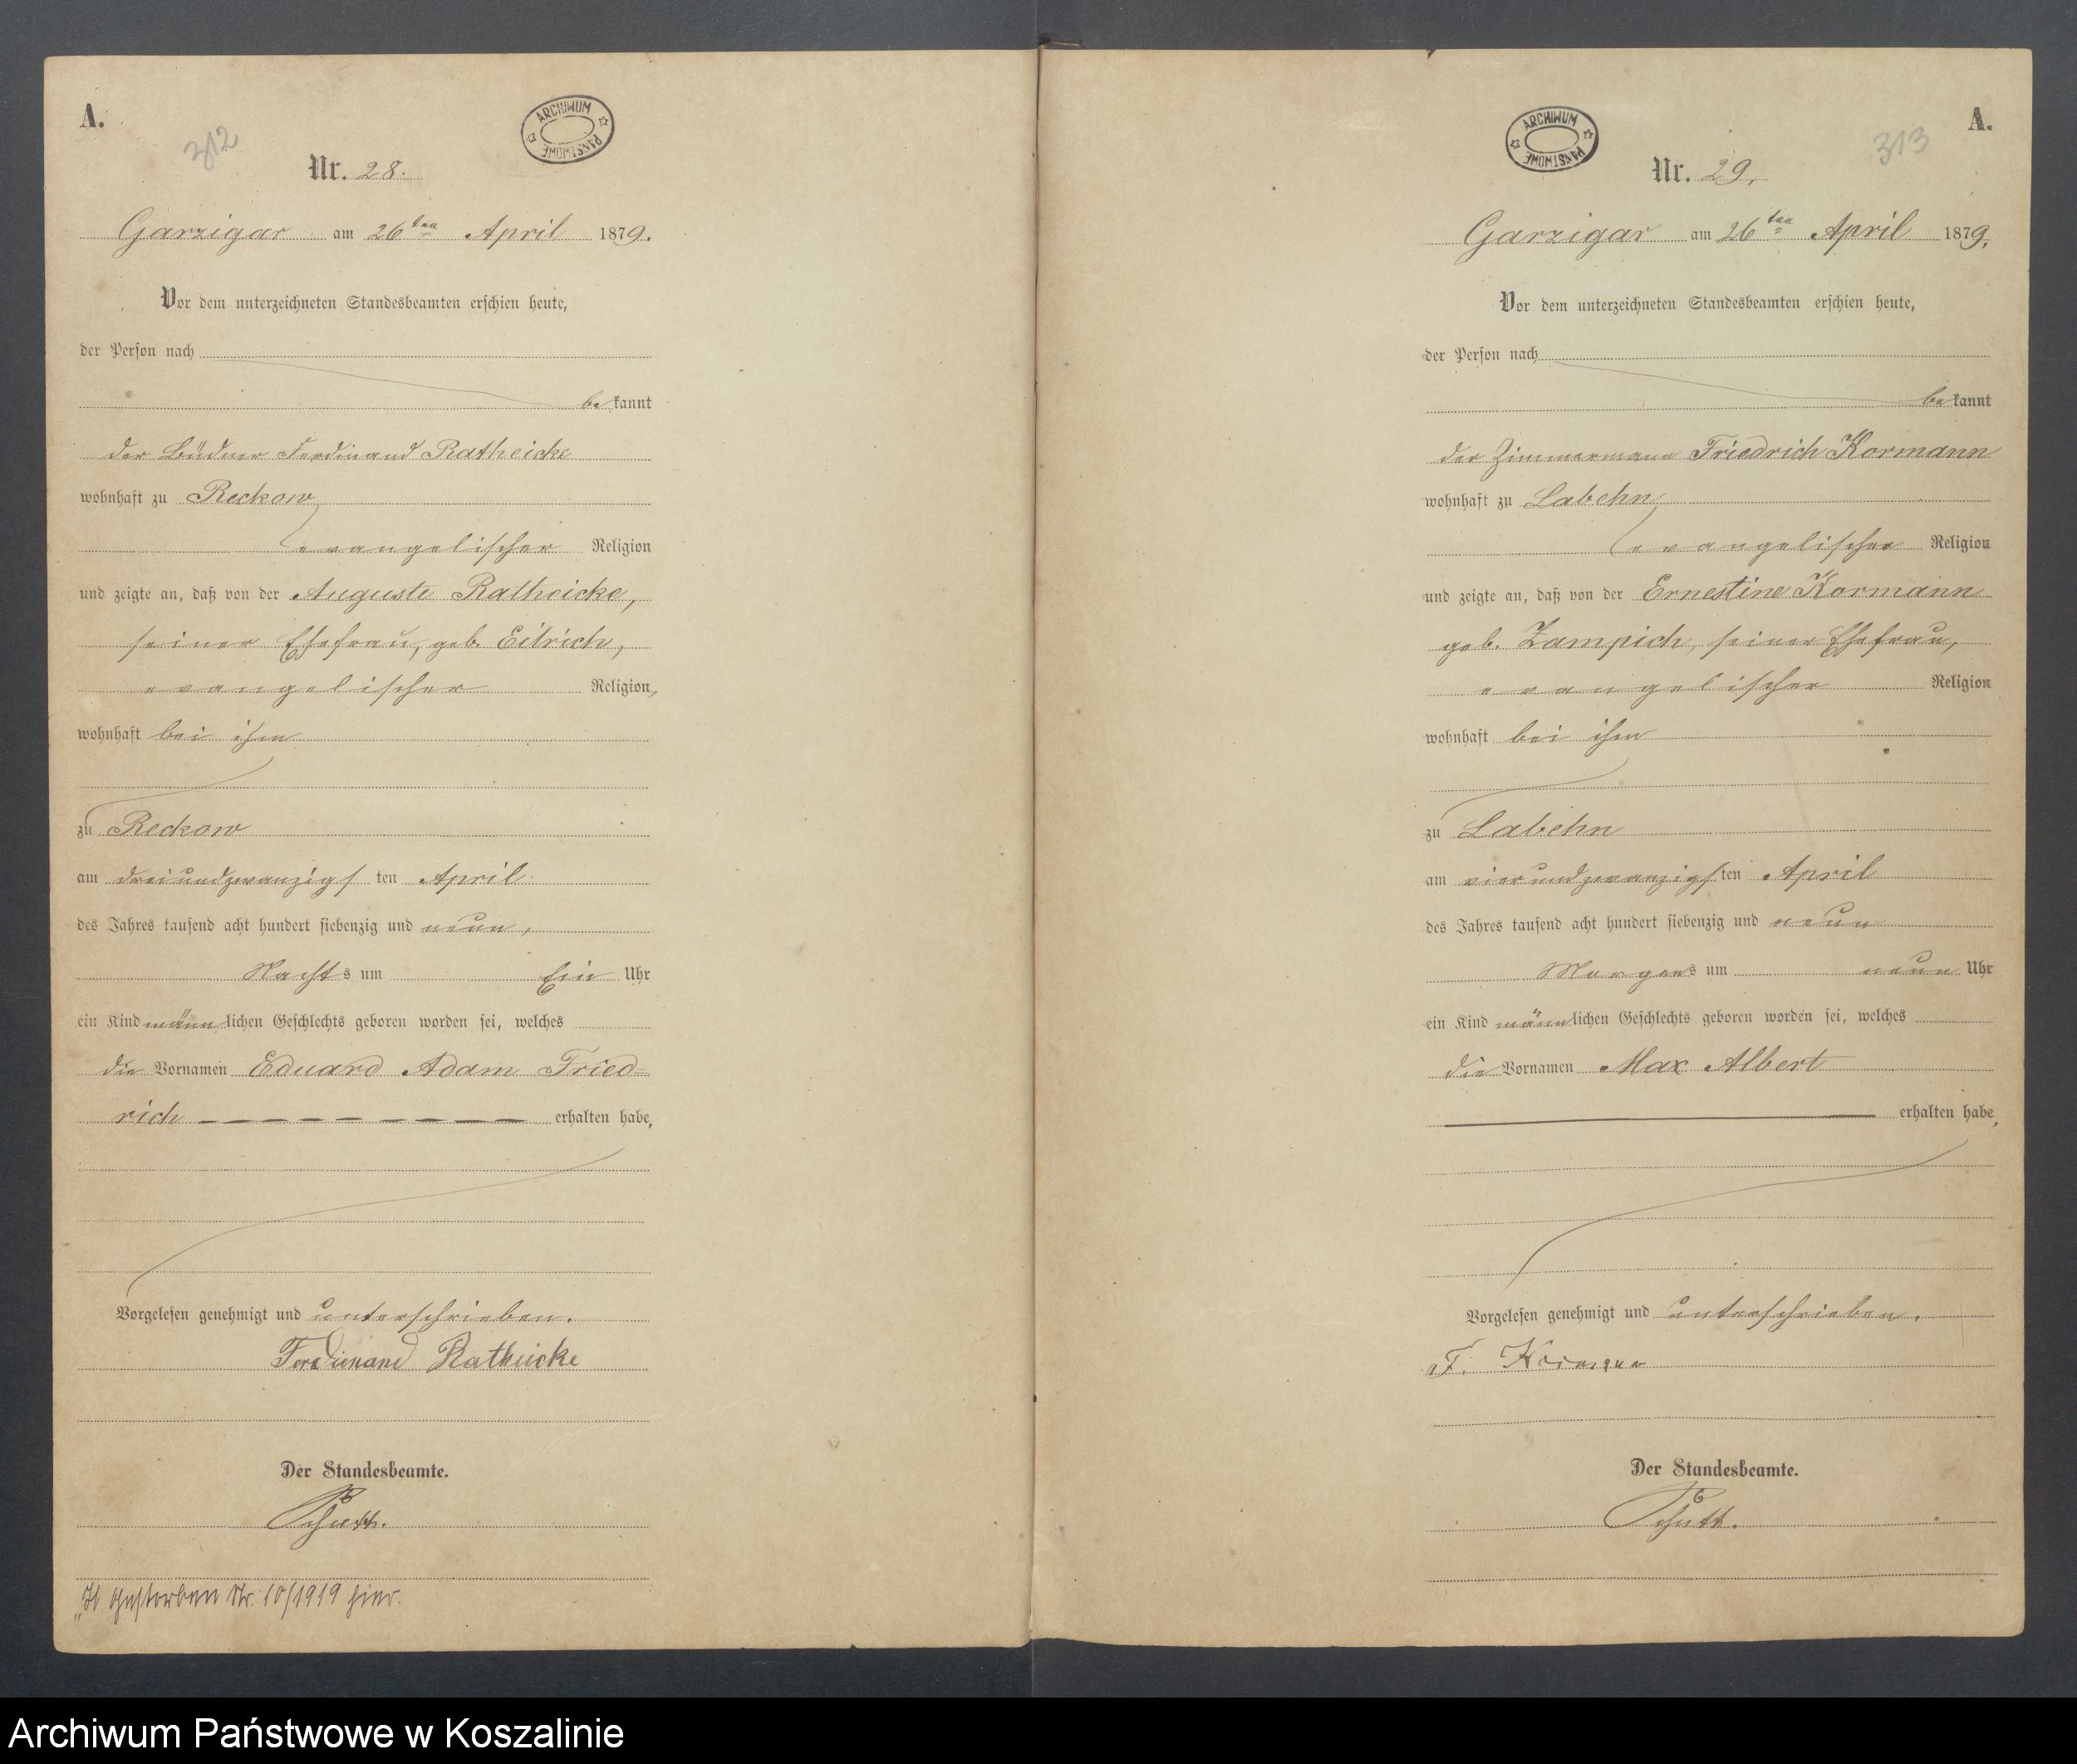 A.
312
ARCHIWUM PAŃSTWOWE
Nr. 28.
Garzigar am 26ten April 1879.
Vor dem unterzeichneten Standesbeamten erschien heute,
der Person nach
bekannt
der Büdner Ferdinand Ratheicke
wohnhaft zu Reckow
evangelischer Religion
und zeigte an, daß von der Auguste Ratheicke,
seiner Ehefrau, geb. Eitrich,
evangelischer Religion,
wohnhaft bei ihm
zu Reckow
am dreiundzwanzigsten April
des Jahres tausend acht hundert siebenzig und neun,
Nachts um Ein Uhr
ein Kind männlichen Geschlechts geboren worden sei, welches
die Vornamen Eduard Adam Fried=
rich erhalten habe,
Vorgelesen genehmigt und unterschrieben.
Ferdienand Ratheicke
Der Standesbeamte.
Gestorben Nr. 10/1919 hier.
ARCHIWUM PAŃSTWOWE
A.
313
Nr. 29.
Garzigar am 26ten April 1879.
Vor dem unterzeichneten Standesbeamten erschien heute,
der Person nach
bekannt
der Zimmermann Friedrich Kormann
wohnhaft zu Labehn
evangelischer Religion
und zeigte an, daß von der Ernestine Kormann
geb. Zampich, seiner Ehefrau,
evangelischer Religion
wohnhaft bei ihm
zu Labehn
am vierundzwanzigsten April
des Jahres tausend acht hundert siebenzig und neun
Morgens um neun Uhr
ein Kind männlichen Geschlechts geboren worden sei, welches
die Vornamen Max Albert
erhalten habe,
Vorgelesen genehmigt und unterschrieben.
F.
Der Standesbeamte.
Archiwum Państwowe w Koszalinie